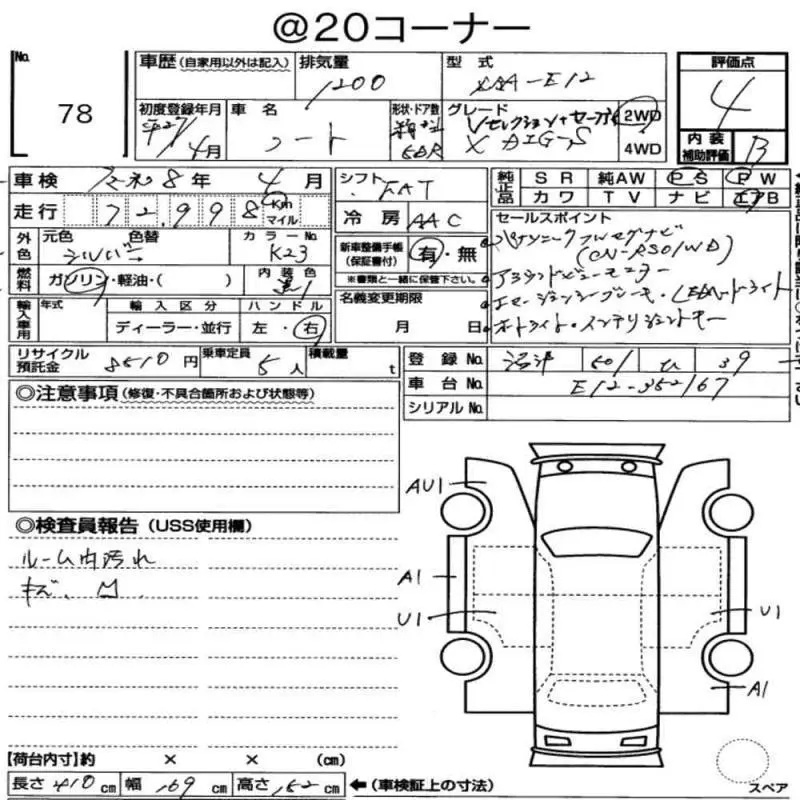 @20コーナー
No. 78
車歴(自家用以外は記入) 排気量 1200 型式 -E12 評価点 4
初度登録年月 平27年4月 車名 ノート 形状・ドア数 5DR グレード Vセレクション+セーフ X DIG-S 2WD 4WD 内装補助評価 B
車検 令和8年4月 シフト FAT 純正品 SR 純AW PS PW
カワ TV ナビ エアB
走行 72,998 Km マイル 冷房 AAC セールスポイント
パナソニックフルセグナビ
(CN-RS01WD)
外色 元色 シルバー 色替 カラーNo. K23 新車整備手帳(保証書付) 有・無
※書類と一緒に保管下さい。
アラウンドビューモニター
燃料 ガソリン・軽油・( ) 内装色 黒1
エマージェンシーブレーキ・LEDヘッドライト
オートライト・インテリジェントキー
輸入車用 年式 輸入区分 ディーラー・並行 ハンドル 左・右 名義変更期限 月 日
リサイクル預託金 8510円 乗車定員 5人 積載量 t 登録No. 沼津 501 ひ 39
車台No. E12-352167
シリアルNo.
◎注意事項(修復・不具合箇所および状態等)
◎検査員報告(USS使用欄)
ルーム内汚れ
キズ、凹
AU1
A1
U1
U1
A1
スペア
【荷台内寸】約 × × (cm)
長さ 410cm 幅 169cm 高さ 152cm ←(車検証上の寸法)